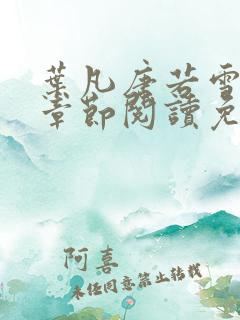 葉凡唐若雪
章節閱讀免
阿喜
未經同意禁止轉載